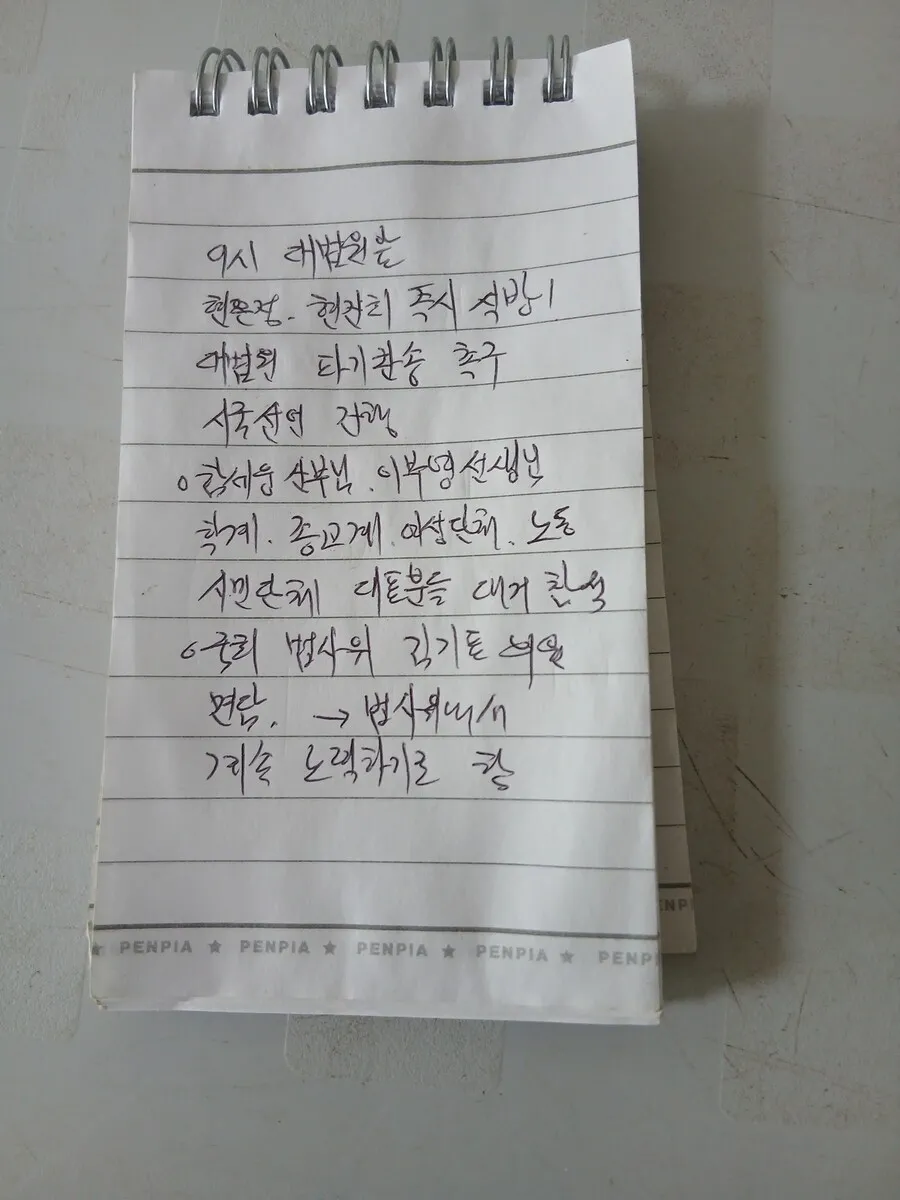 9시 대법원은
현은정. 현찬희 즉시 석방!
대법원 파기환송 촉구
시국선언 진행
o 함세웅 신부님. 이부영 선생님
학계. 종교계. 여성단체. 노동
시민단체 대표분들 대거 참석
o 국회 법사위 김기표 의원
면담. → 법사위에서
계속 노력하기로 함
★ PENPIA ★ PENPIA ★ PENPIA ★ PENPIA ★ PENP
ENP